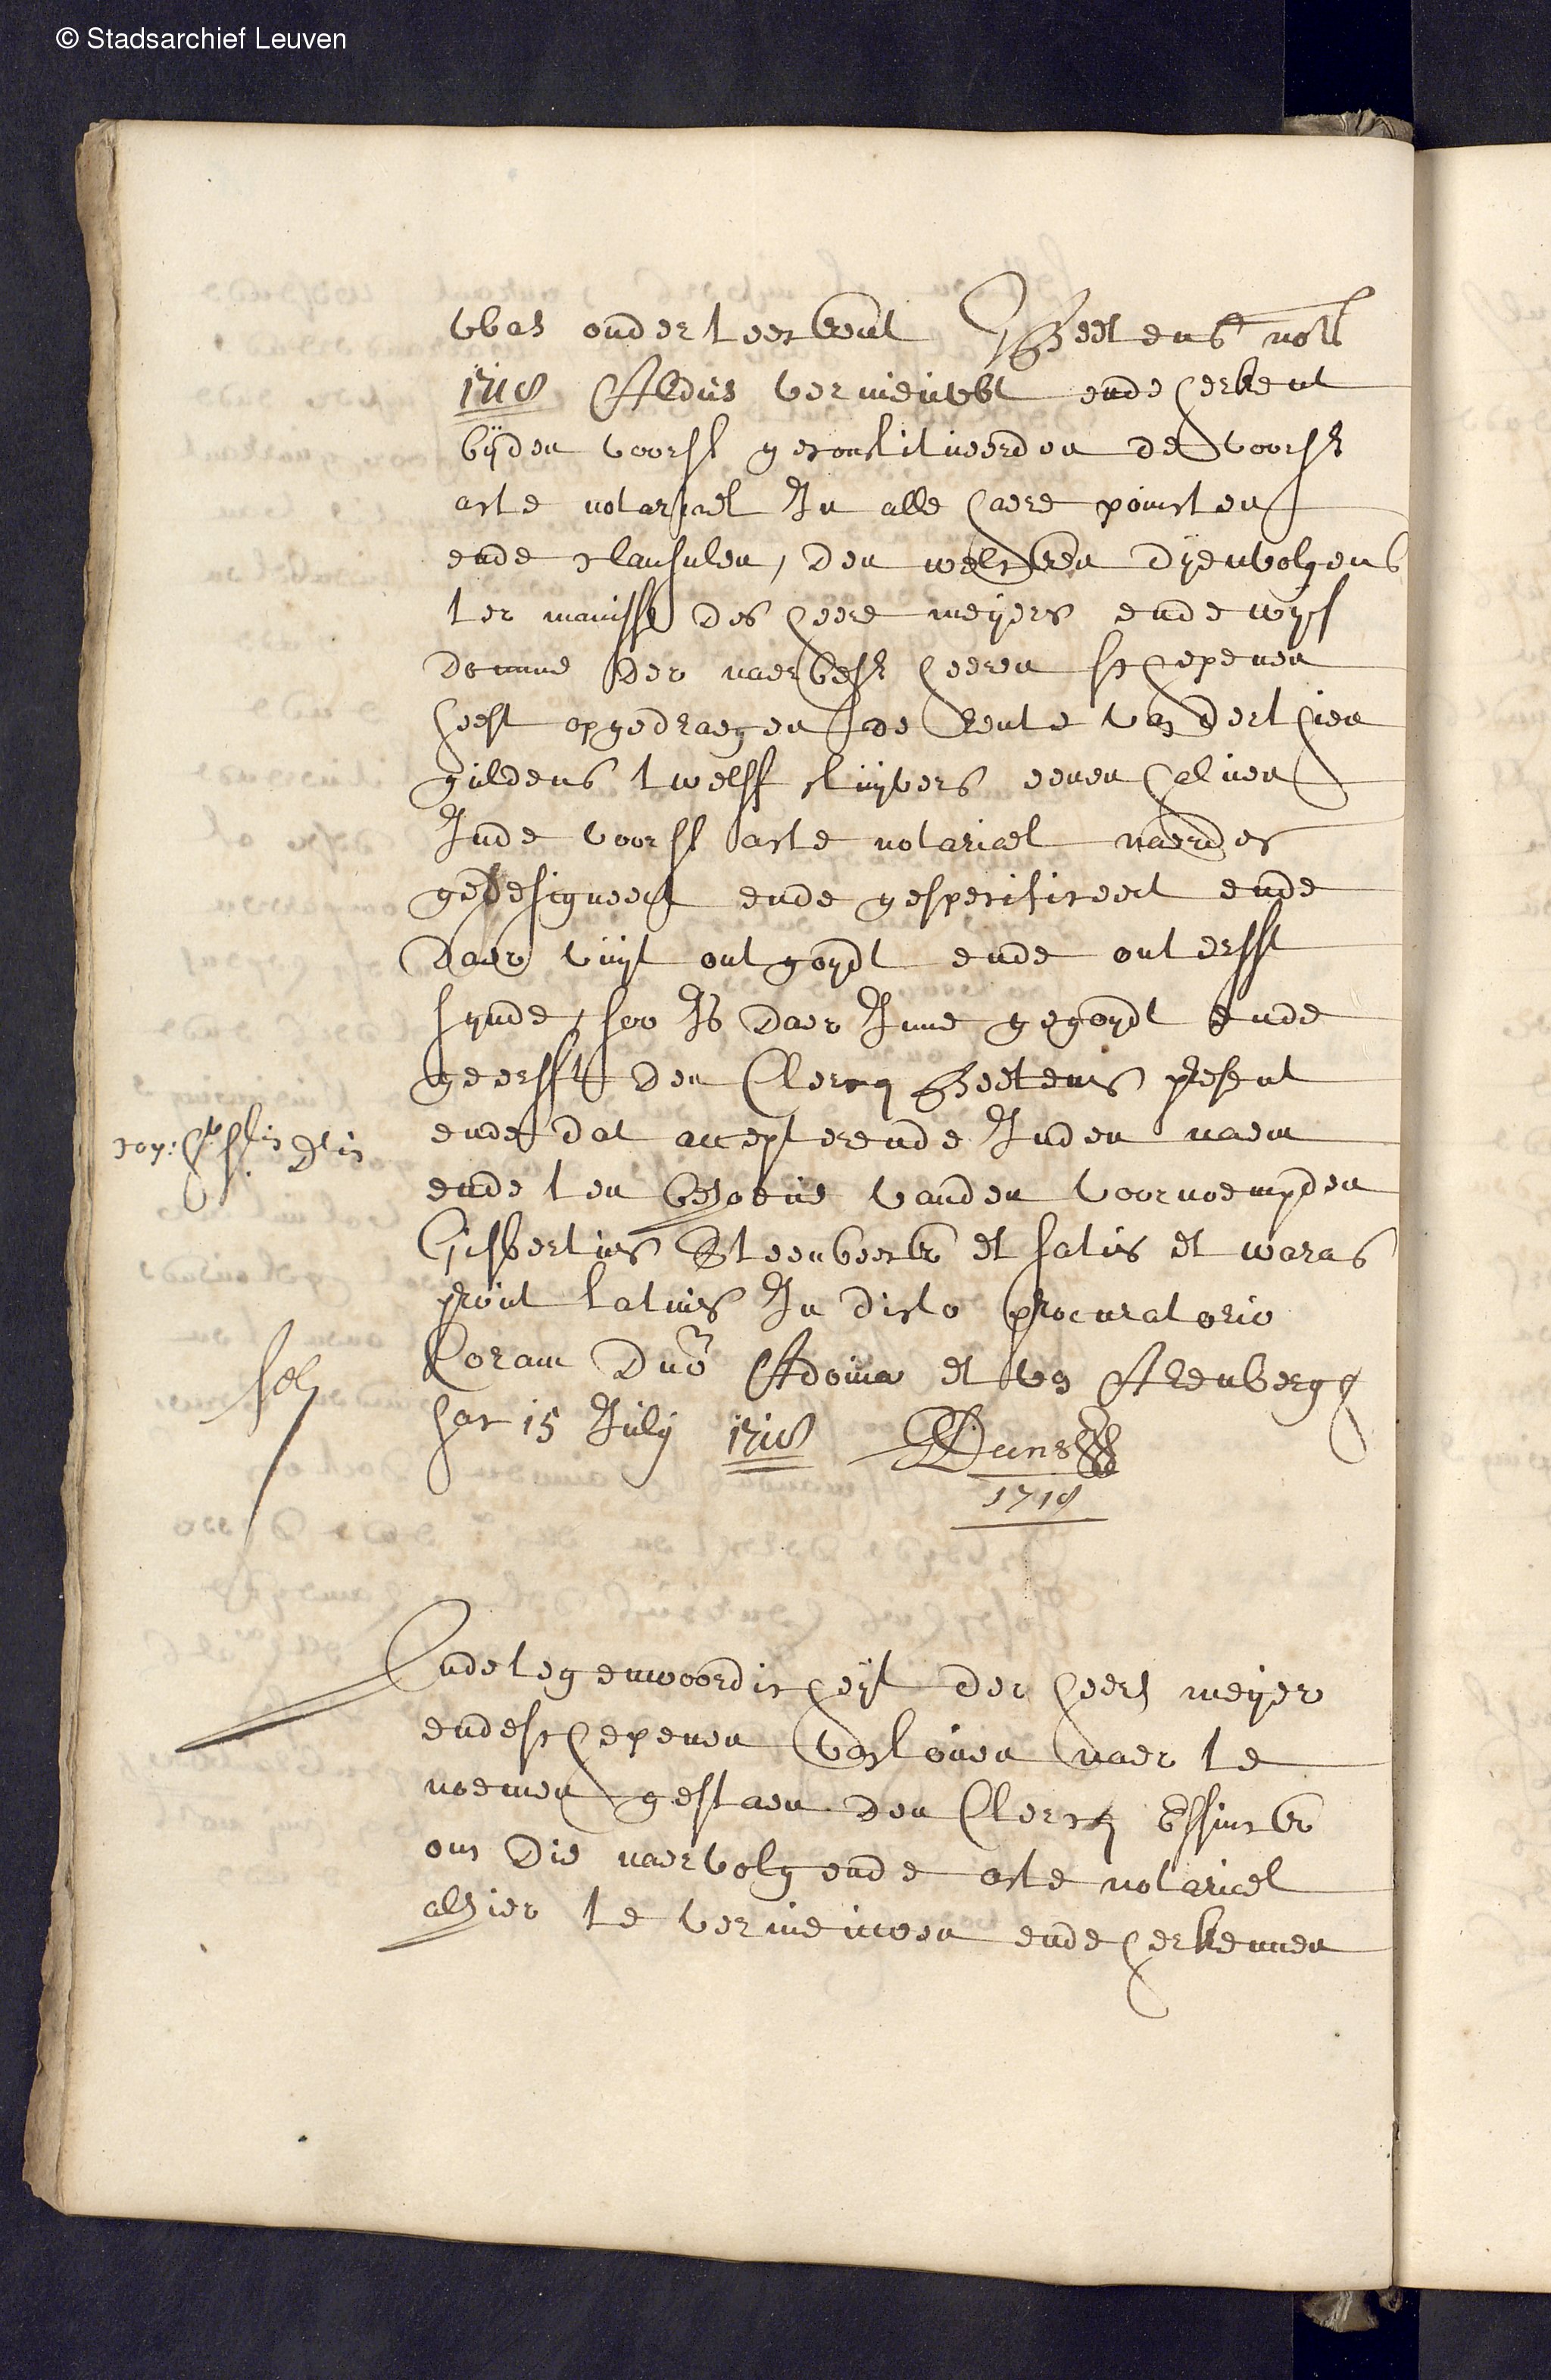 © Stadsarchief Leuven
was onderteeckent Beetens nots
1718 Aldus vernieuwt ende herkent
bijden voors geconstitueerden de voors
acte notariael In alle haere poincten
ende clausulen, den welcken dyenvolgens
ter manisse des heere meijers ende wys
domme der naerbes heeren schepenen
heeft opgedraegen de rente van derthien
guldens twelff stuyvers eenen halven
Inde voors acte notariael naerder
gedesigneert ende gespecificeert ende
daer vuyt ontgoydt ende onterfft
synde, soo Is daer Inne gegoydt ende
geerfft den Clercq Beetens present
ende dat accepterende Inden naem
ende ten behoeve vanden voornoempden
Gisbertus Steenbeeck et satis et waras
prout latius In dicto procuratorio
Coram Dno Adoma et van Arenbergh
hac 15 July 1718
1718
sol
Ende tegenwoordicheyt der heere meyer
ende schepenen van Loven naer te
noemen gestaen den Clercq Essinck
om die naervolgende acte notariael
alhier te vernieuwen ende herkennen